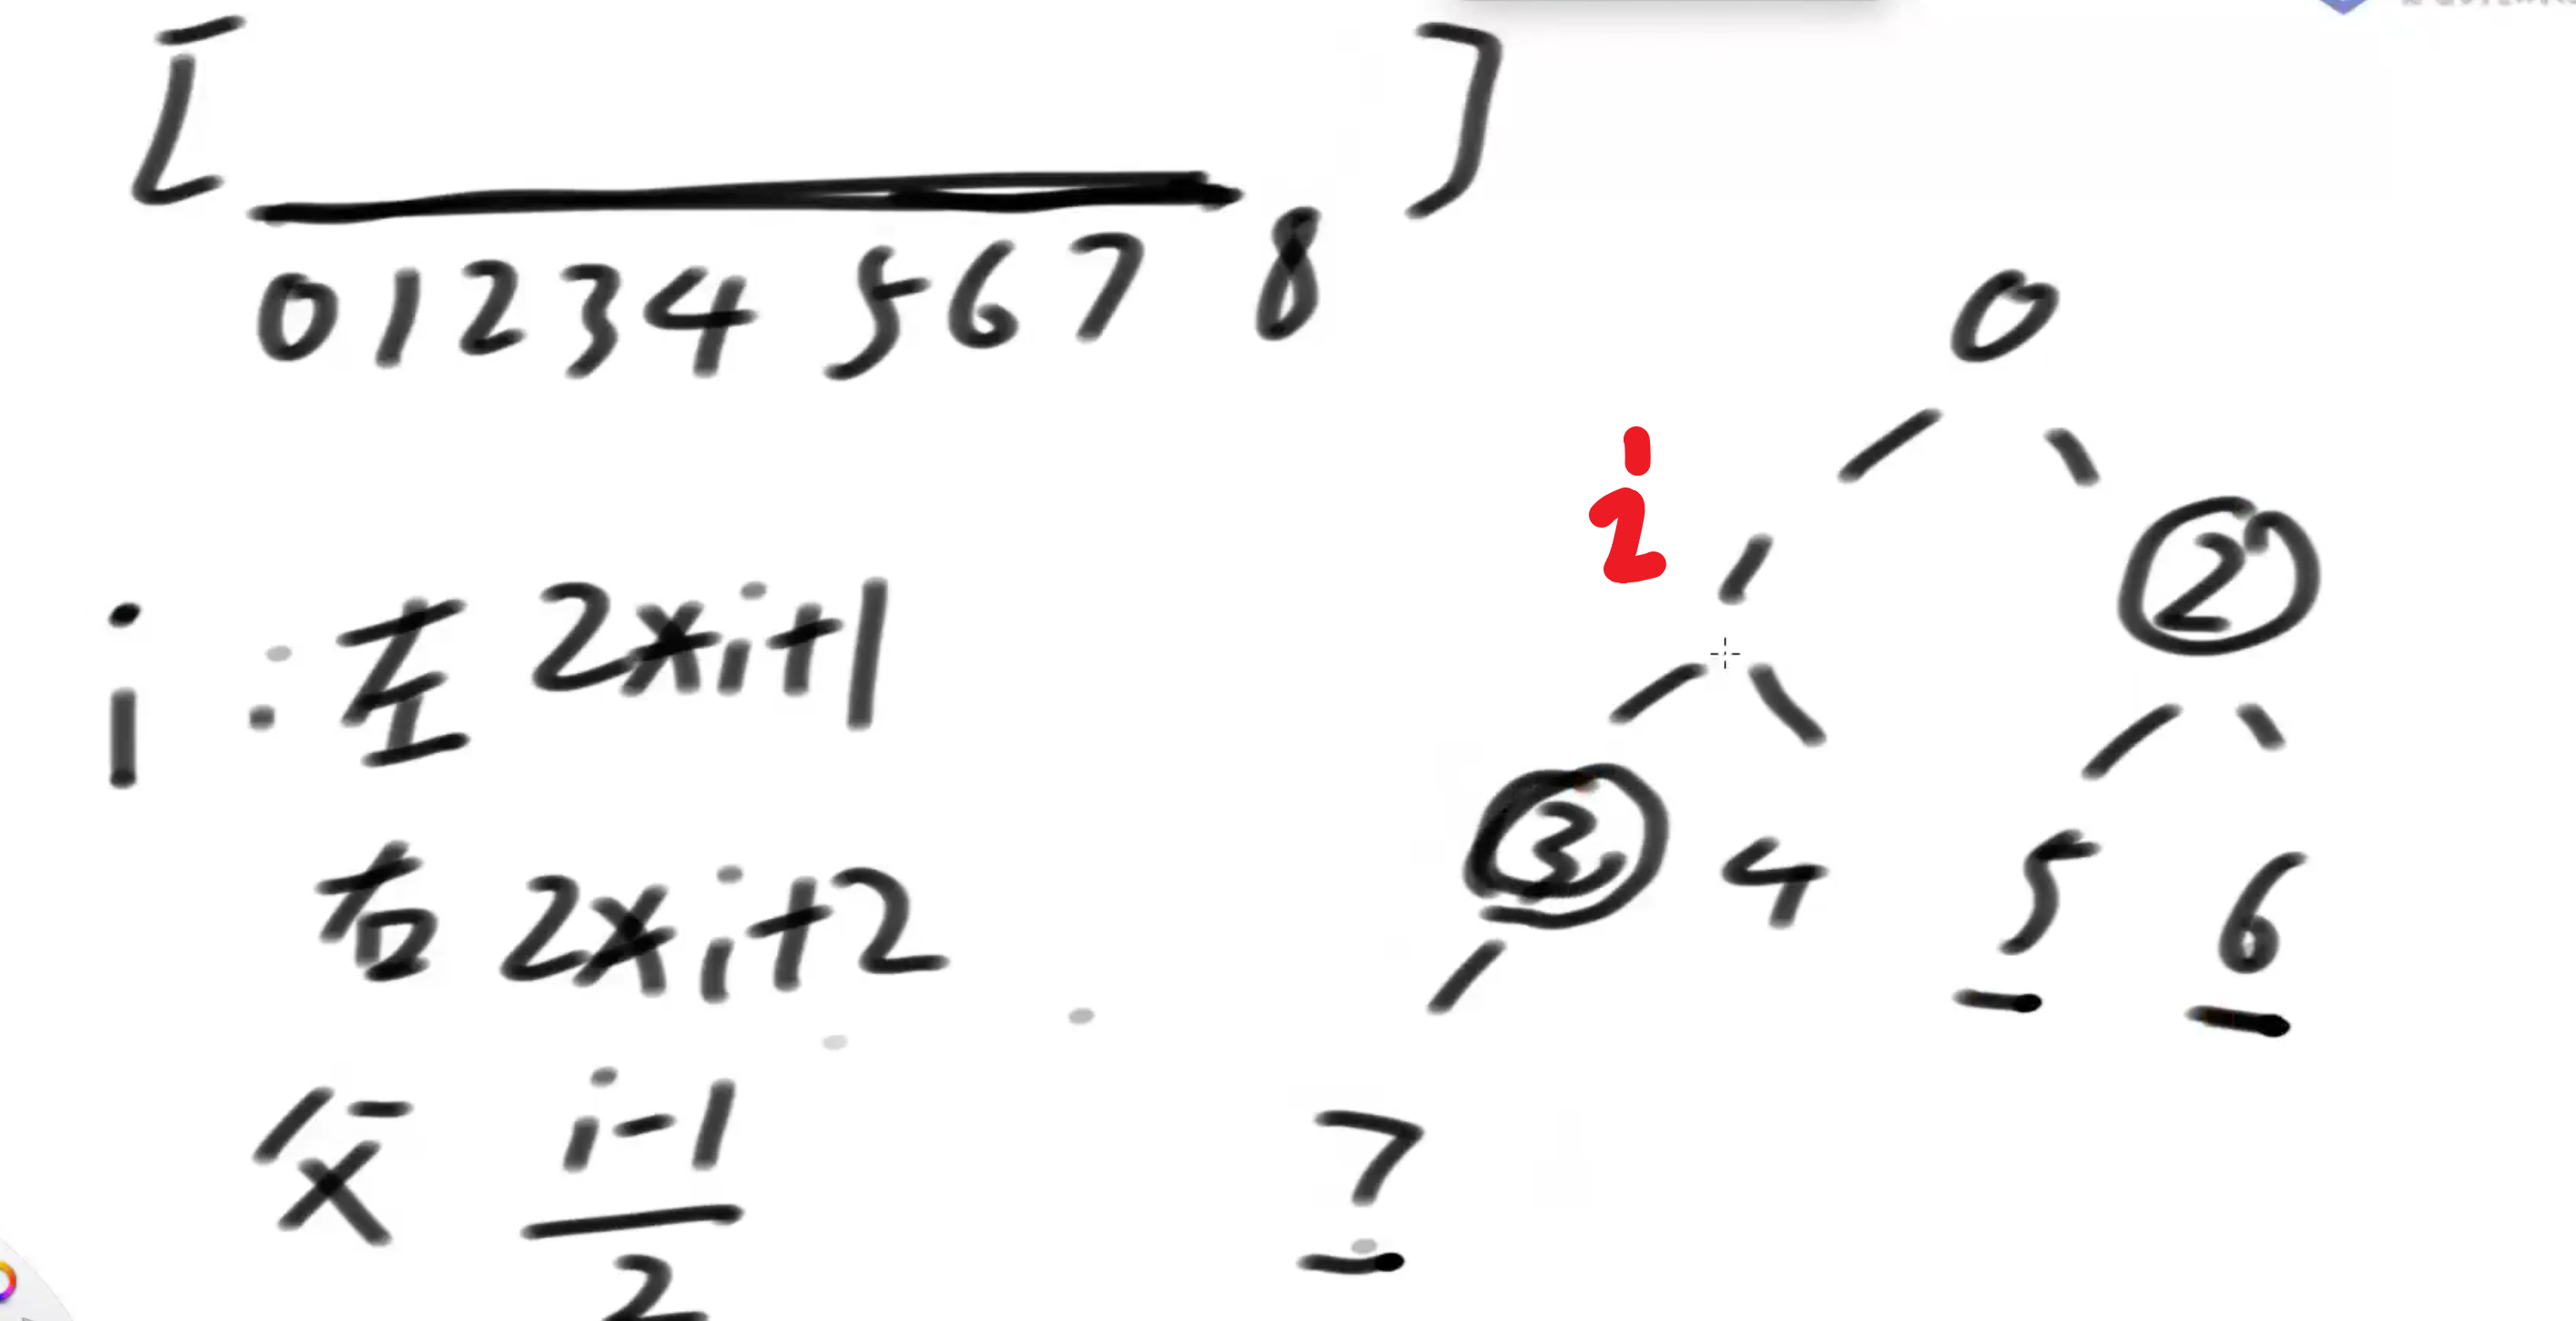 [ ]
0 1 2 3 4 5 6 7 8
i : 左 2×i+1
右 2×i+2
父 i-1
2
0
i
1 2
3 4 5 6
7